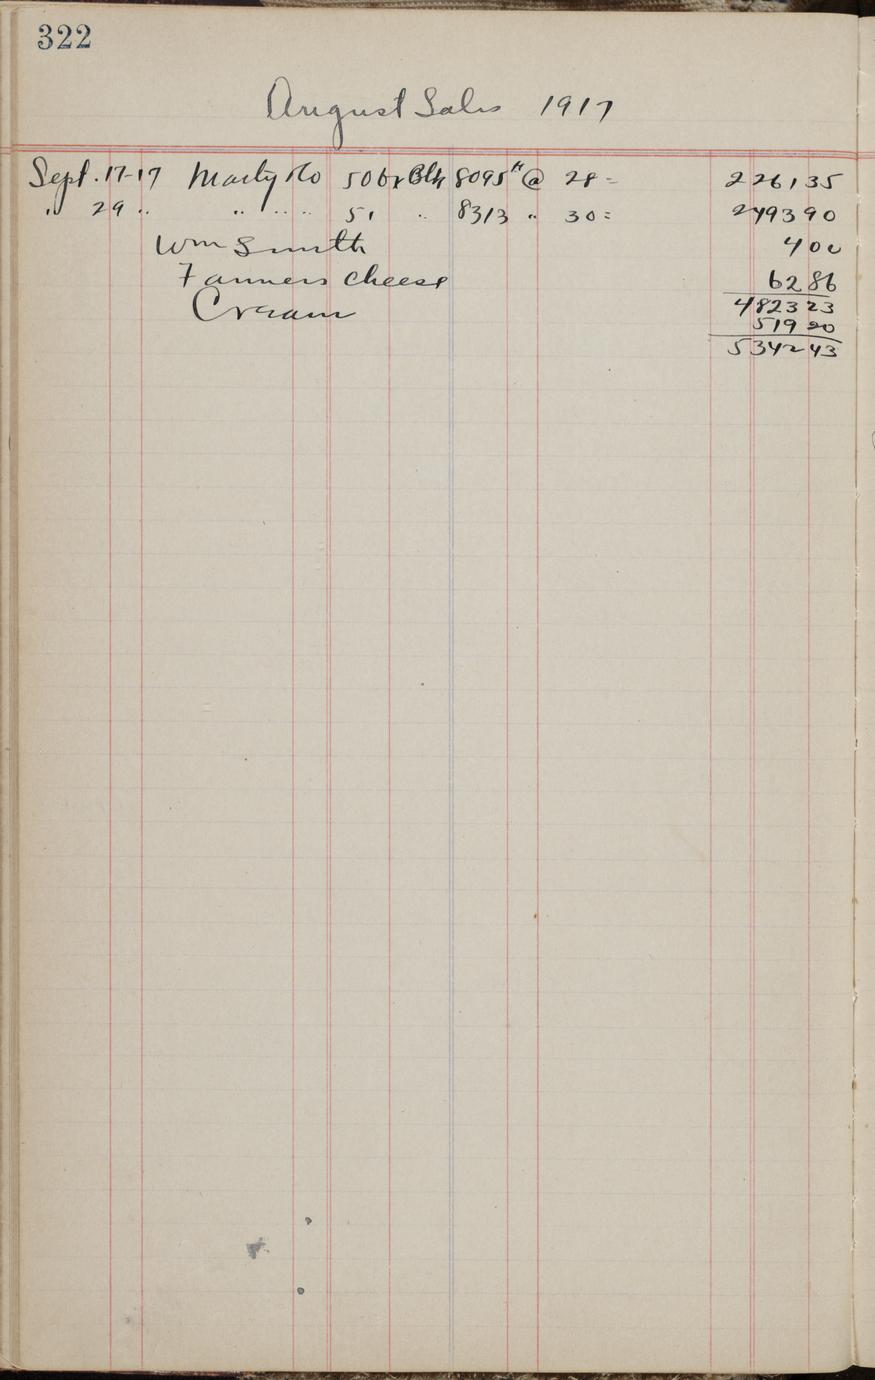 322
August Sales 1917
Sept. 17-17 Marty & Co 50 bx Blk 8095# @ 28 = 2261 35
" 29 " " " " 51 " 8313 " 30 = 2493 90
Wm Smith 4 00
Farmers cheese 62 86
4823 23
Cream 519 20
5342 43